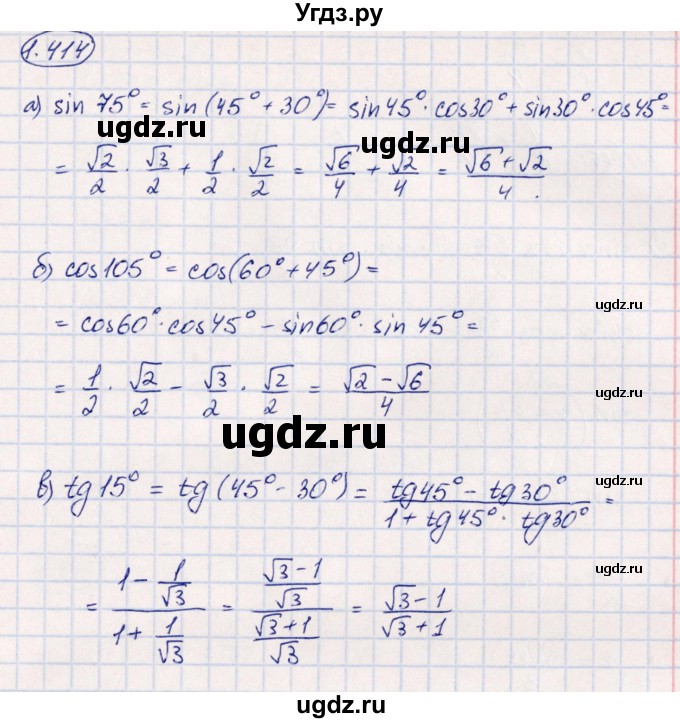 Угдз.ру
1.414
а) sin 75° = sin (45° + 30°) = sin 45° · cos 30° + sin 30° · cos 45° =
ugdz.ru
= √2/2 · √3/2 + 1/2 · √2/2 = √6/4 + √2/4 = (√6 + √2)/4.
ugdz.ru
ugdz.ru
б) cos 105° = cos(60° + 45°) =
ugdz.ru
= cos 60° · cos 45° - sin 60° · sin 45° =
= 1/2 · √2/2 - √3/2 · √2/2 = (√2 - √6)/4
ugdz.ru
ugdz.ru
в) tg 15° = tg (45° - 30°) = (tg 45° - tg 30°)/(1 + tg 45° · tg 30°) =
ugdz.ru
= (1 - 1/√3)/(1 + 1/√3) = ((√3 - 1)/√3)/((√3 + 1)/√3) = (√3 - 1)/(√3 + 1)
ugdz.ru
ugdz.ru